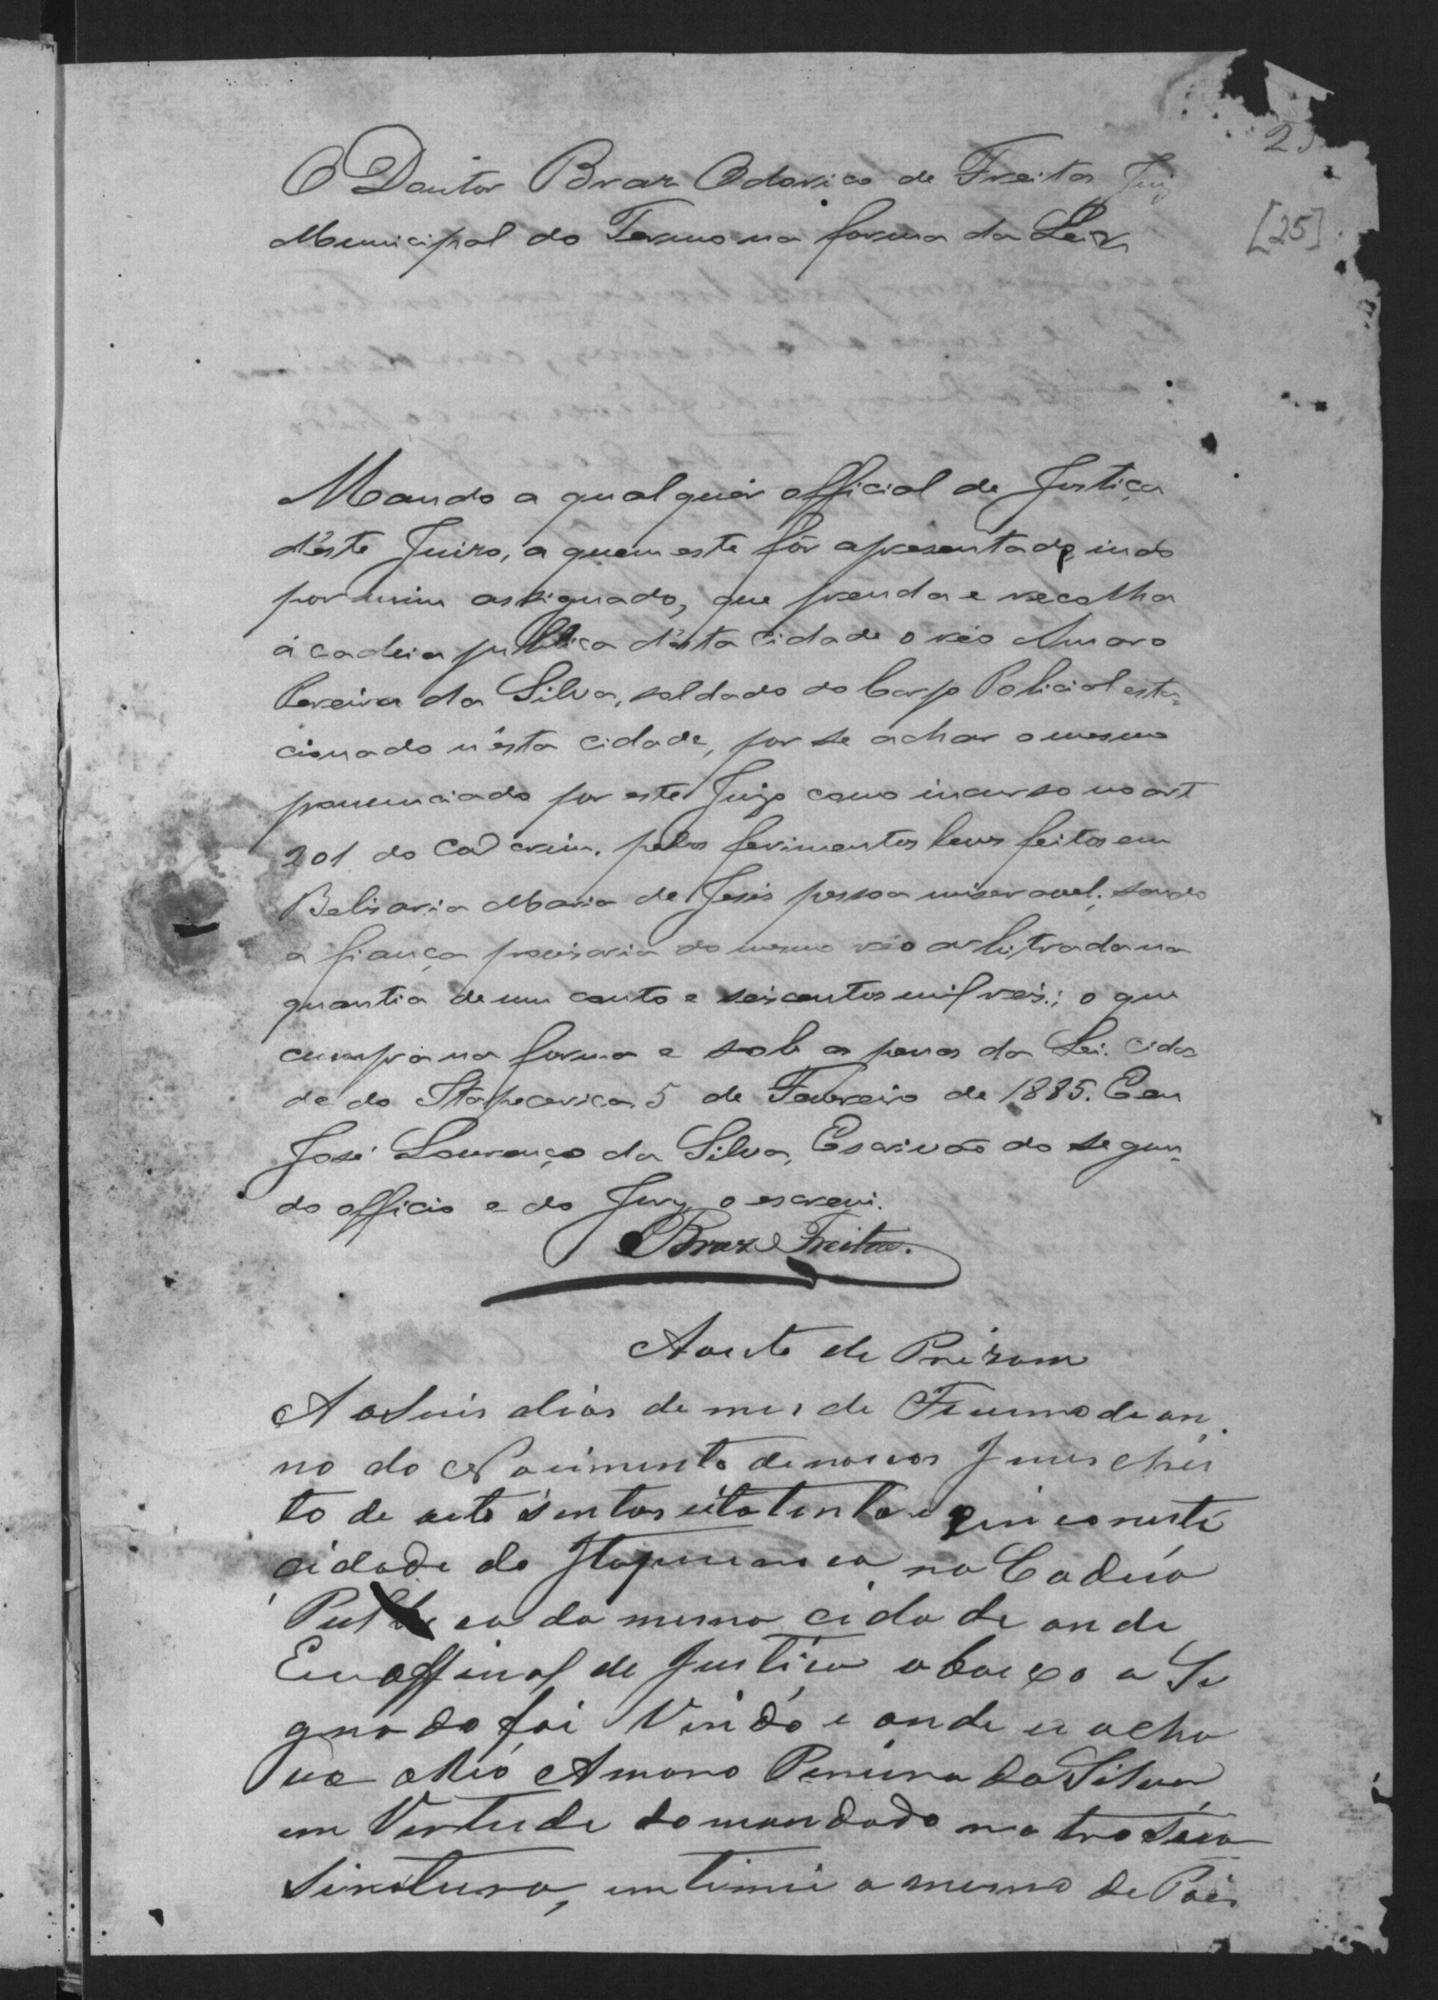 25
[25]
O Doutor Braz Odorico de Freitas Juiz
Municipal do Termo na forma da Lei &
Mando a qualquer official de Justiça
d'éste Juizo, a quem este fôr apresentado, indo
por mim assignado, que prenda e recolha
á cadeia publica d'ésta cidade o réo Amaro
Pereira da Silva, soldado do Corpo Policial esta-
cionado n'ésta cidade, por se achar o mesmo
pronunciado por este Juizo como incurso no art
201 do Cod crim. pelos ferimentos leves feitos em
Belisaria Maria de Jesus pessoa miseravel; sendo
a fiança provisoria do mesmo réo arbitrada na
quantia de um conto e seiscentos mil reis; o que
cumpra na forma e sob as penas da Lei. Cida-
de do Itapecerica 5 de Fevereiro de 1885. Eu
José Lourenço da Silva, Escrivão do segun-
do officio e do Jury o escrevi.
Braz Freitas.
Aouto de Prizam
Aos seis dias de mes de Feverero de an
no do Nacimento de nosços Jeses chris
to de oito sentos e oitenta e sinco neste
cidade do Itapecerica na Cadeia
Publica da mesma cidade onde
Eu official de Justiça abaixo a Si
gnado foi Vindo e onde se acha
va o Reó Amaro Pereira da Silva
em Vertude do mandado
e intimei o mesmo de